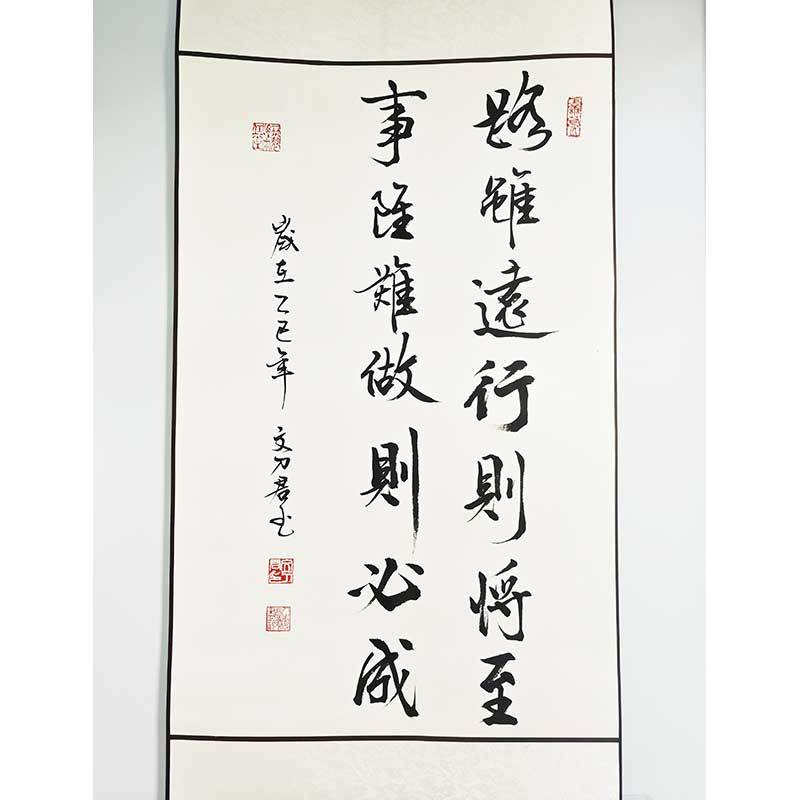 路雖遠行則将至
事雖難做則必成
歲在乙巳年 文刀君书